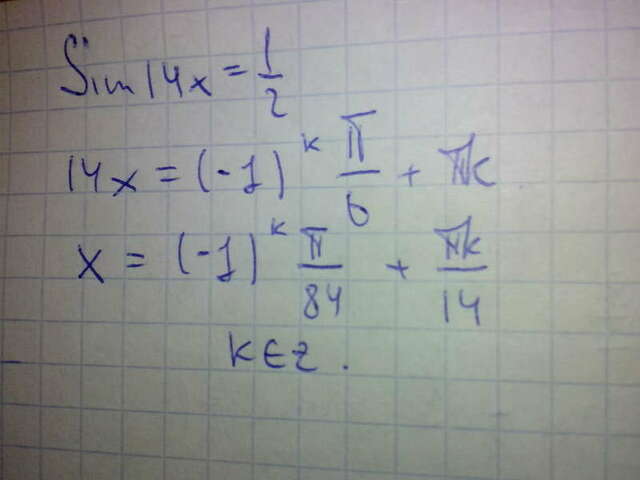 Sin14x = 1/2
14x = (-1)^k π/6 + πk
x = (-1)^k π/84 + πk/14
k∈z.